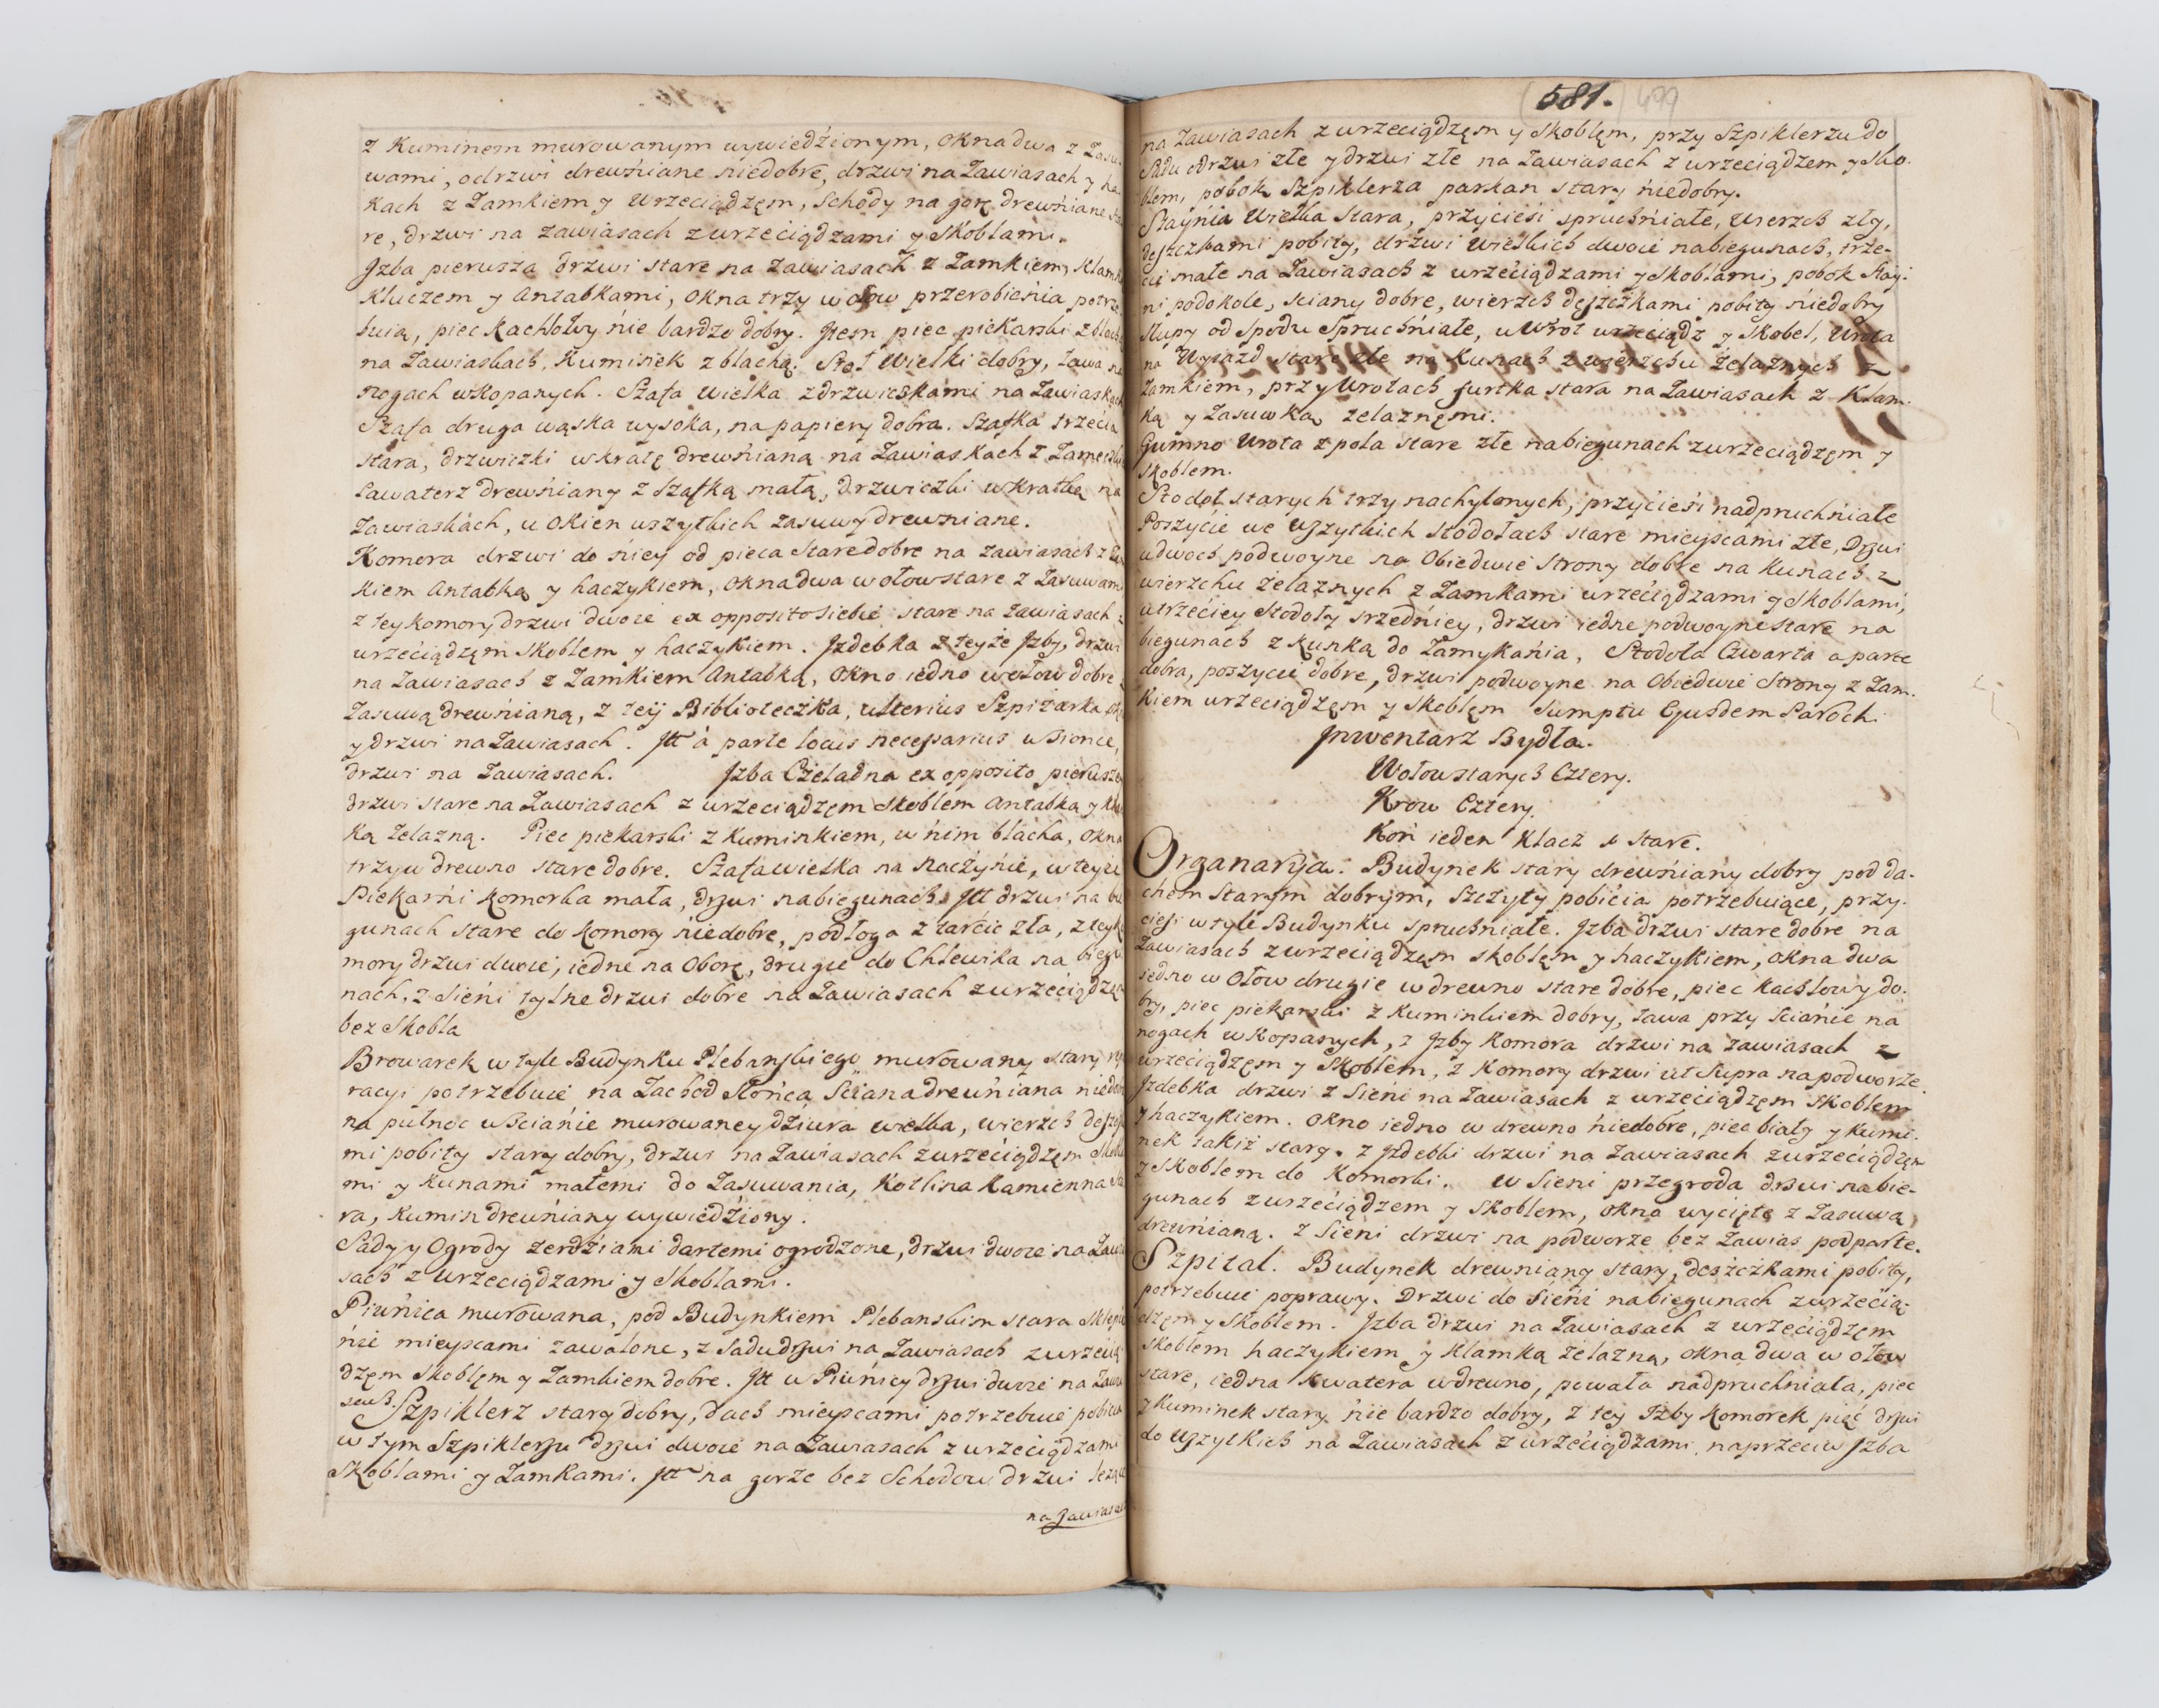 z Kuminem murowanym wywiedźionym, Okna dwa z Zasu-
wami, odrzwi drewńiane niedobre, drzwi na Zawiasach y ha-
kach z Zamkiem y Wrzeciądzęm, Schody na gorę drewńiane sta-
re, drzwi na zawiasach z wrzeciądzami y Skoblami.
Jzba pierwsza drzwi stare na zawiasach z Zamkiem, Klamk
Kluczem y Antabkami, Okna trzy w ołow przerobieńia potrze
buią, piec Kachlowy ńie bardzo dobry. Jtem piec piekarski z blach
na Zawiaskach, Kuminek z blachą. Stoł Wielki dobry, Ława na
nogach wkopanych. Szafa Wielka z drzwiczkami na Zawiaskach
Szafa druga wąska wysoka, na papiery dobra. Szafka trzecia
stara, drzwiczki w kratę drewńianą na Zawiaskach z Zameczk
Lawaterz drewńiany z Szafką małą, drzwiczki w Kratkę na
Zawiaskach, u Okien wszytkich zasuwy drewniane.
Komora drzwi do ńiey od pieca Stare dobre na zawiasach z Zam
kiem Antabką y haczykiem, okna dwa w ołow stare z Zasuwami
z tey komory drzwi dwoie ex opposito siebie stare na zawiasach z
wrzeciądzęm Skoblem y haczykiem. Jzdebka z teyże Jzby, drzwi
na Zawiasach z Zamkiem Antabką, Okno iedno w ołow dobre z
Zasuwą drewńianą, z teij Biblioteczka, ulterius Szpiżarka
y drzwi na Zawiasach. Jtt à parte locus necessarius w Sionce,
drzwi na Zawiasach. Jzba Czeladna ex opposito pierwszey
drzwi stare na Zawiasach z wrzeciądzęm Skoblem Antabką y Klam
ką żelazną. Piec piekarski z Kuminkiem, w ńim blacha, okna
trzy w drewno stare dobre. Szafa wielka na naczyńie, w teyże
Piekarńi Komorka mała, drzwi na biegunach. Jtt drzwi na bie
gunach stare do Komory ńiedobre, podłoga z tarcic zła, z teyko
mory drzwi dwoie, iedne na Oborę, drugie do Chlewika na biegu
nach, z Sieńi tylne drzwi dobre na Zawiasach z wrzeciądzem
bez Skobla
Browarek w tyle Budynku Plebanskiego murowany stary
racyi potrzebuie na Zachod Słońca Sciana drewńiana niedob
na pułnoc w Sciańie murowaney dźiura wielka, wierzch deszcz
mi pobity stary dobry, drzwi na Zawiasach z wrzeciądzęm Skobla
mi y Kunami małemi do Zasuwania, Kotlina Kamienna sta
ra, Kumin drewńiany wywiedźiony.
Sady y Ogrody żerdziami dartemi ogrodzone, drzwi dwoie na Zawia
sach z wrzeciądzami y Skoblami.
Piwńica murowana, pod Budynkiem Plebanskim stara Sklepie
ńie mieyscami zawalone, z Sadu drzwi na Zawiasach z wrzecią
dzęm Skoblęm y Zamkiem dobre. Jtt w Piwńicy drzwi dwoie na Zawia
sach. Szpiklerz stary dobry, dach mieyscami potrzebuie pobicia
w tym Szpiklerzu drzwi dwoie na Zawiasach z wrzeciądzami
Skoblami y Zamkami. Jtt na gorze bez Schodow drzwi leżące
na Zawiasach
581.
499
na Zawiasach z wrzeciądzęm y Skoblęm, przy Szpiklerzu do
Sadu odrzwi złe y drzwi złe na Zawiasach z wrzeciądzem y Sko-
blem, pobok Szpiklerza parkan stary ńiedobry.
Stayńia Wielka Stara, przyćieśi spruchńiałe, Wierzch zły,
deszczkami pobity, drzwi wielkich dwoie na biegunach, trze-
cie małe na Zawiasach z wrzeciądzami y Skoblami, pobok Stay-
ni podokole, sciany dobre, wierzch deszczkami pobity ńiedobry
Słupy od Spodu Spruchńiałe, u Wrot wrzeciądz y Skobel, Wrota
na Wyiazd stare złe na Kunach z wierzchu Żelaznych z
Zamkiem, przy Wrotach furtka stara na Zawiasach z Klam-
ką y Zasuwką żelaznęmi.
Gumno Wrota z pola stare złe na biegunach z wrzeciądzęm y
Skoblem.
Stodoł starych trzy nachylonych, przyćieśi nadpruchńiałe
Poszycie we wszytkich Stodołach stare mieyscami złe, Drzwi
u dwoch podwoyne na Obiedwie Strony dobre na Kunach z
wierzchu żelaznych z Zamkami wrzećiądzami y Skoblami,
u trzećiey Stodoły srzedńiey, drzwi iedne podwoyne stare na
biegunach z Kunką do Zamykańia, Stodoła Czwarta a parte
dobra, poszycie dobre, drzwi podwoyne na Obiedwie Strony z Zam-
kiem wrzeciądzęm y Skoblęm Sumptu Ejusdem Parochi.
Jnwentarz Bydła.
Wołow starych Cztery.
Krow Cztery.
Koń ieden Klacz stare.
Organarya. Budynek stary drewńiany dobry pod da-
chem Starym dobrym, Szczyty pobićia potrzebuiące, przy-
cieśi w tyle Budynku spruchniałe. Jzba drzwi stare dobre na
Zawiasach z wrzeciądzęm skoblęm y haczykiem, okna dwa
iedno w Ołow drugie w drewno stare dobre, piec Kachlowy do-
bry, piec piekarski z Kuminkiem dobry, Ława przy sciańie na
nogach wkopanych, z Jzby Komora drzwi na zawiasach z
wrzeciądzęm y Skoblem, z Komory drzwi ut Supra na podworze.
Jzdebka drzwi z Sieńi na Zawiasach z wrzeciądzęm Skoblem
y haczykiem. Okno iedno w drewno ńiedobre, piec biały y Kumi-
nek takiż stary. z Jzdebki drzwi na Zawiasach z wrzeciądzęm
y Skoblem do Komorki. w Sieni przegroda drzwi na bie-
gunach z wrzećiądzem y Skoblem, okno wycięte z Zasuwą
drewnianą. z Sieni drzwi na podworze bez Zawias podparte.
Szpital. Budynek drewniany stary, deszczkami pobity,
potrzebuie poprawy. Drzwi do Sieńi na biegunach z wrzecią-
dzęm y Skoblem. Jzba drzwi na Zawiasach z wrzećiądzęm
Skoblem haczykiem y Klamką żelazną, okna dwa w ołow
stare, iedna Kwatera w drewno, powała nadpruchniała, piec
y Kuminek stary ńie bardzo dobry, z tey Jzby Komorek pięć drzwi
do wszytkich na Zawiasach z wrzećiądzami, naprzeciw Jzba